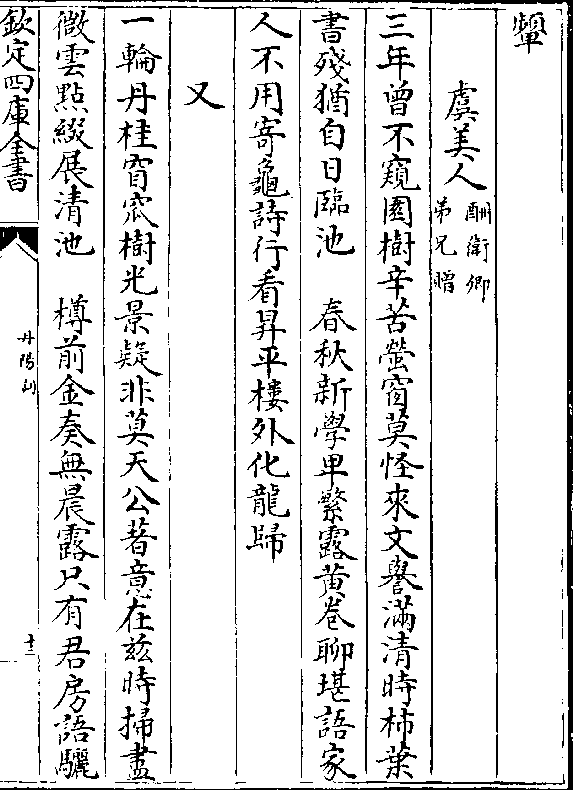 顰
虞美人 酬衛卿
弟兄贈
三年曾不窺園樹辛苦螢窗莫怪來文譽滿清時柿葉
書殘猶自日臨池　春秋新學卑繁露黄卷聊堪語家
人不用寄龜詩行看昇平樓外化龍歸
又
一輪丹桂窅窊樹光景疑非莫天公著意在兹時掃盡
微雲點綴展清池　樽前金奏無晨露只有君房語驪
欽定四庫全書
丹陽詞